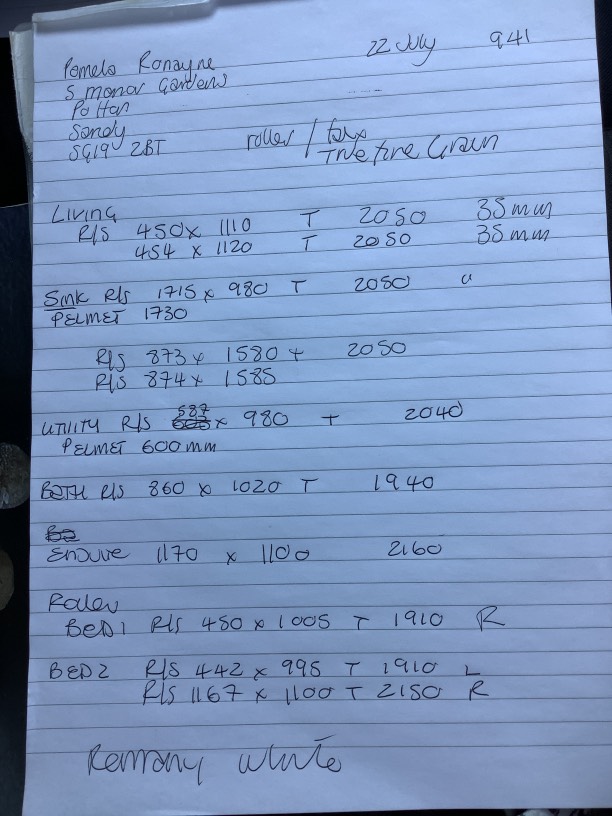 22 July 941
Pamela Ronayne
5 manor Gardens
Potton
Sandy
SG19 2BT
roller / faux
True Fine Grain
Living
R/S 450 x 1110 T 2050 35mm
454 x 1120 T 2050 35mm
Sink R/S 1715 x 980 T 2050 "
PELMET 1730
R/S 873 x 1580 + 2050
R/S 874 x 1585
UTILITY R/S 587 x 980 + 2040
PELMET 600mm
BATH R/S 860 x 1020 T 1940
1170 x 1100 2160
Roller
BED1 R/S 450 x 1005 T 1910 R
BED2 R/S 442 x 995 T 1910 L
R/S 1167 x 1100 T 2150 R
White